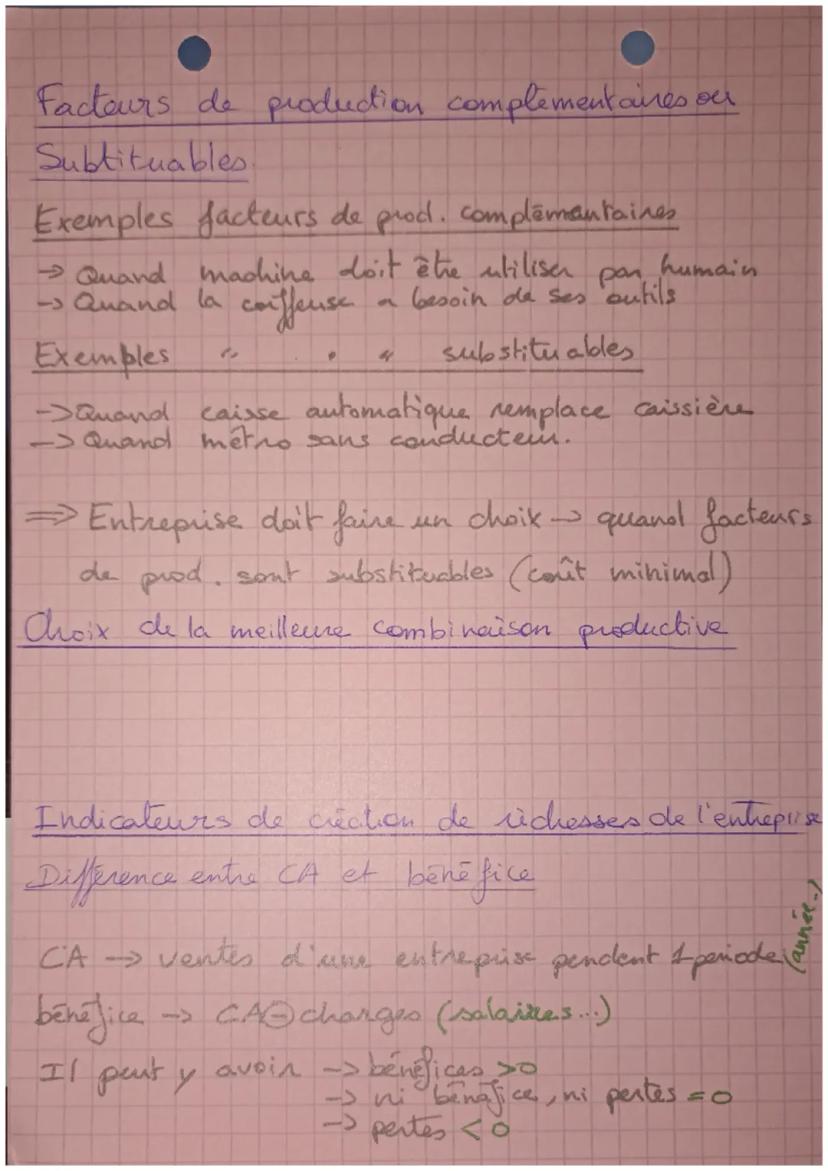 Facteurs de production complémentaires ou
Subtituables.
Exemples facteurs de prod. complémentaires
-> Quand machine doit être utiliser par humain
-> Quand la coiffeuse a besoin de ses outils
Exemples " " " substituables
-> Quand caisse automatique remplace caissière
-> Quand métro sans conducteur.
=> Entreprise doit faire un choix -> quand facteurs
de prod. sont substituables (coût minimal)
Choix de la meilleure combinaison productive
Indicateurs de création de richesses de l'entreprise
Différence entre CA et bénéfice
CA -> ventes d'une entreprise pendent 1 periode (année..)
bénéfice -> CA ⊖ charges (salaires...)
Il peut y avoir -> bénéfices >0
-> ni bénéfice, ni pertes = 0
-> pertes < 0